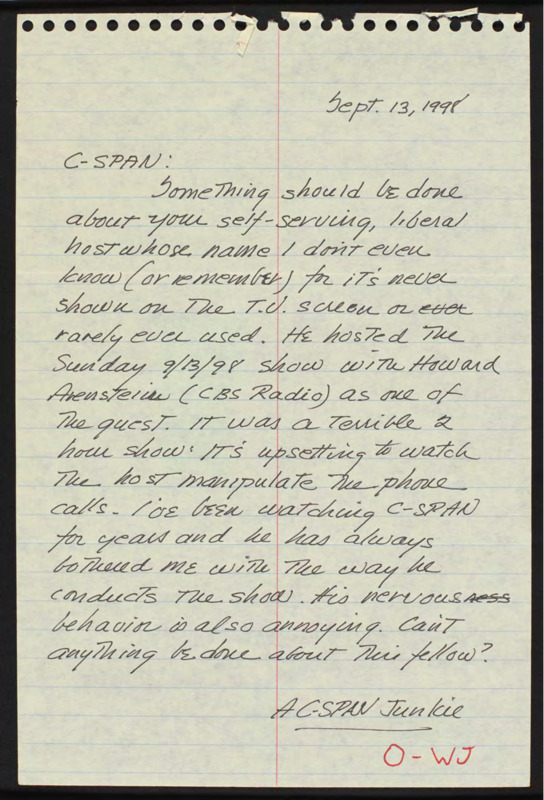 Sept. 13, 1998
C-SPAN:
Something should be done
about your self-serving, liberal
host whose name I don't even
know (or remember) for it's never
shown on the T.V. screen or ever
rarely ever used. He hosted the
Sunday 9/13/98 show with Howard
Arenstein (CBS Radio) as one of
the guest. It was a terrible 2
hour show! It's upsetting to watch
the host manipulate the phone
calls. I've been watching C-SPAN
for years and he has always
bothered me with the way he
conducts the show. His nervousness
behavior is also annoying. Can't
anything be done about this fellow?
A C-SPAN Junkie
O-WJ